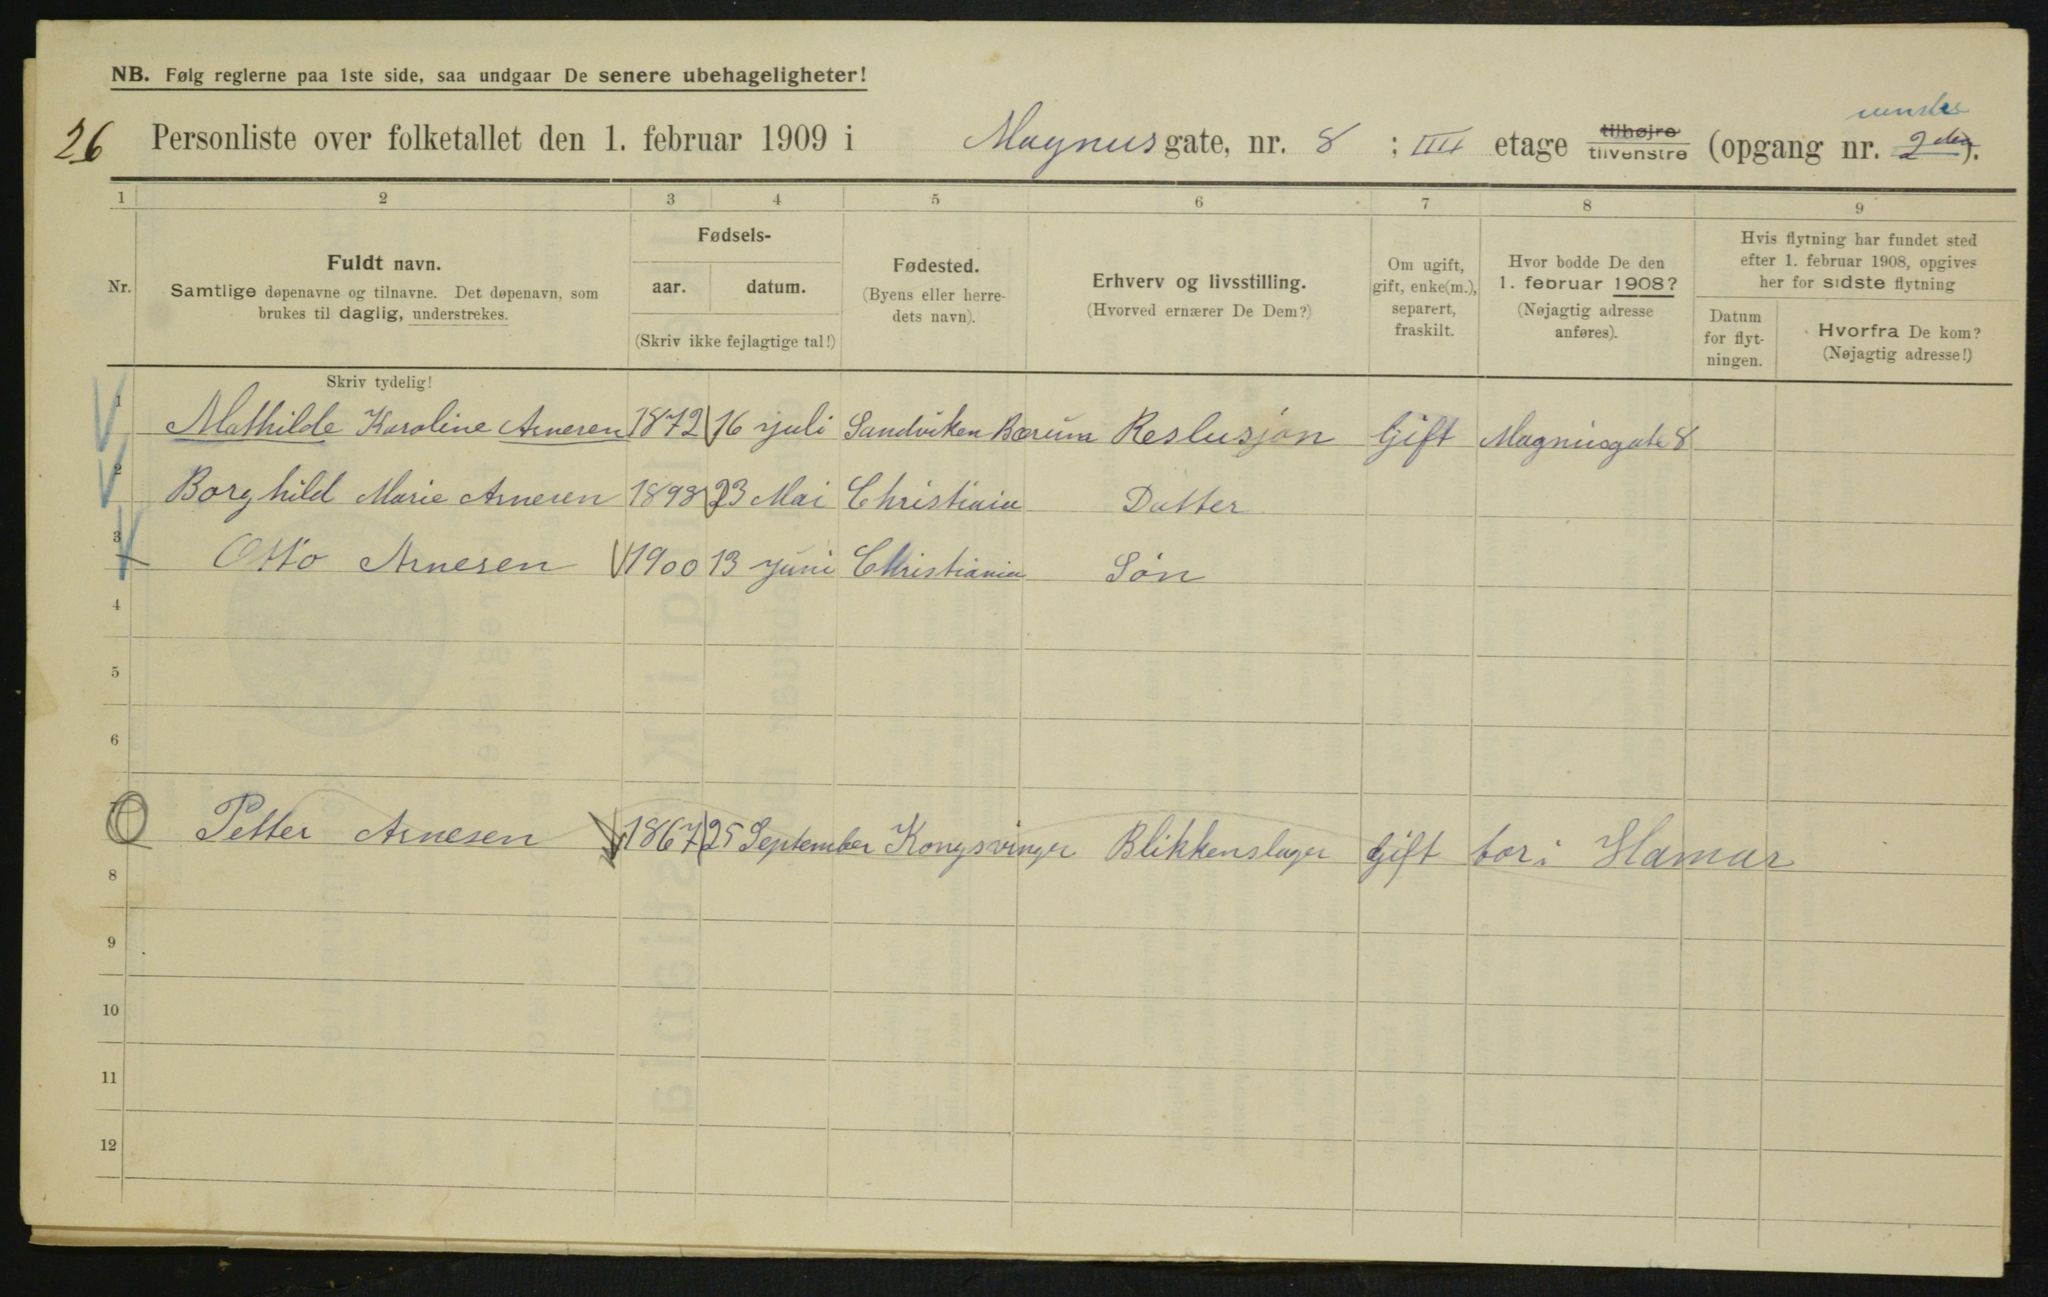 NB. Følg reglerne paa 1ste side, saa undgaar De senere ubehageligheter!
26 Personliste over folketallet den 1. februar 1909 i Magnus gate, nr. 8 ; III etage tilhøjre tilvenstre (opgang nr. 2den).
1 2 3 4 5 6 7 8 9
Nr.
Fuldt navn.
Samtlige døpenavne og tilnavne. Det døpenavn, som
brukes til daglig, understrekes.
Fødsels-
aar. datum.
(Skriv ikke fejlagtige tal!)
Fødested.
(Byens eller herre-
dets navn).
Erhverv og livsstilling.
(Hvorved ernærer De Dem?)
Om ugift,
gift, enke(m.),
separert,
fraskilt.
Hvor bodde De den
1. februar 1908?
(Nøjagtig adresse
anføres).
Hvis flytning har fundet sted
efter 1. februar 1908, opgives
her for sidste flytning
Datum
for flyt-
ningen.
Hvorfra De kom?
(Nøjagtig adresse!)
Skriv tydelig!
1 Mathilde Karoline Arnesen 1872 16 juli Sandviken Bærum Reslusjøn Gift Magnusgate 8
2 Borghild Marie Arnesen 1898 23 Mai Christiania Datter
3 Otto Arnesen 1900 13 juni Christiania Søn
4
5
6
7 Petter Arnesen 1867 25 September Kongsvinger Blikkenslager Gift bor i Hamar
8
9
10
11
12